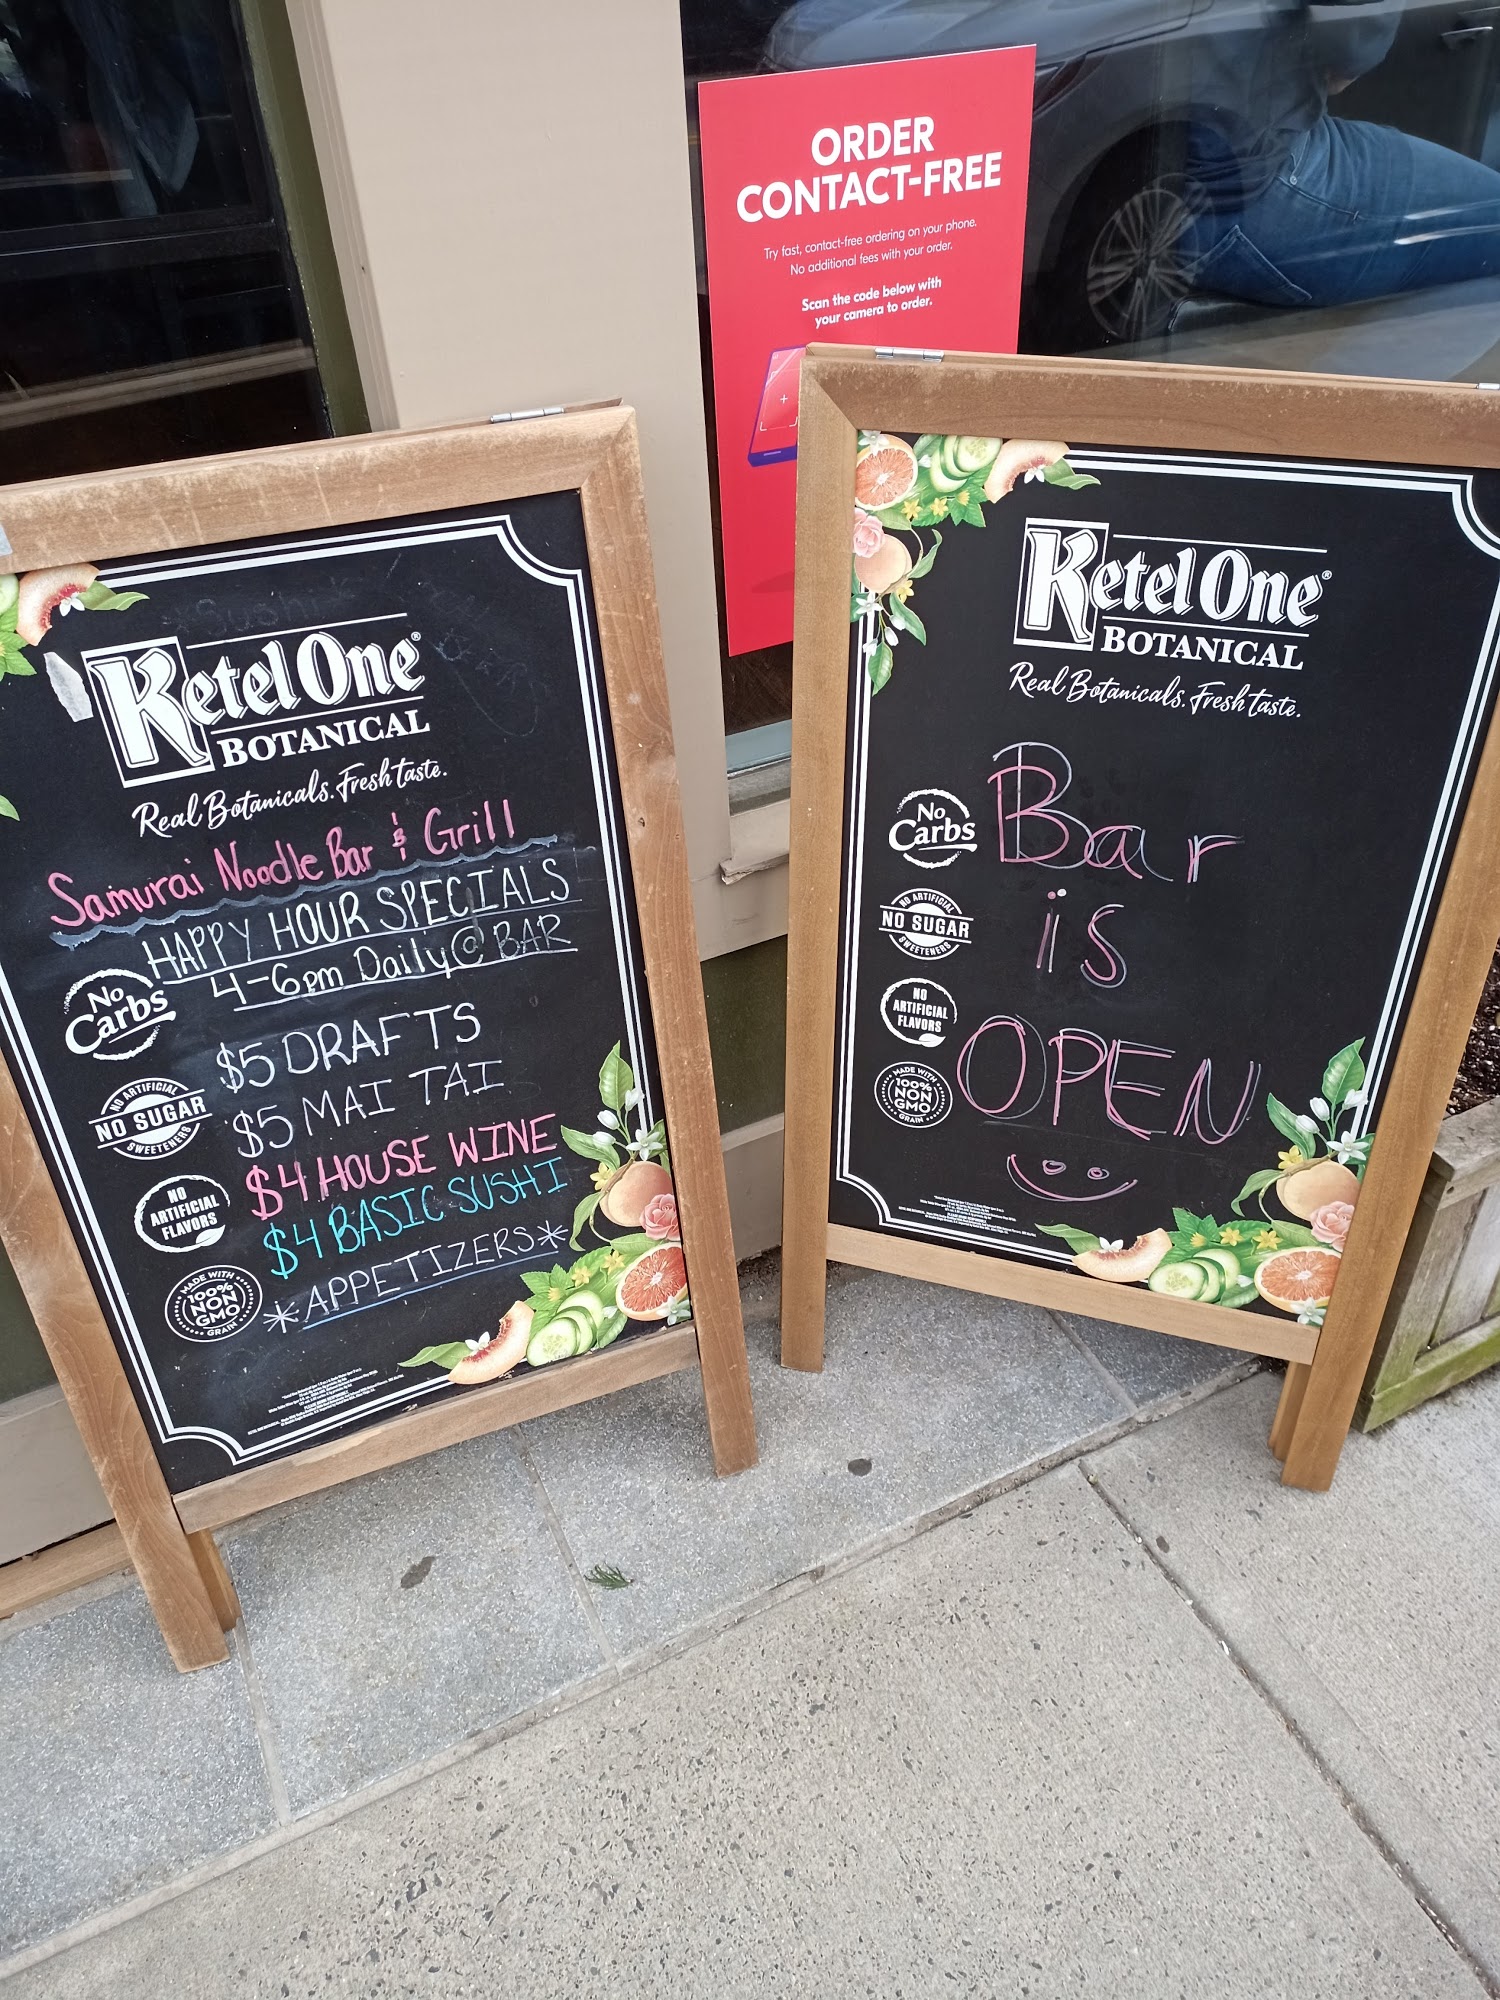 ORDER
CONTACT-FREE
Try fast, contact-free ordering on your phone.
No additional fees with your order.
Scan the code below with
your camera to order.
Ketel One®
BOTANICAL
Real Botanicals. Fresh taste.
Samurai Noodle Bar & Grill
HAPPY HOUR SPECIALS
4-6pm Daily @ BAR
$5 DRAFTS
$5 MAI TAI
$4 HOUSE WINE
$4 BASIC SUSHI
*APPETIZERS*
No
Carbs
NO ARTIFICIAL
NO SUGAR
SWEETENERS
NO
ARTIFICIAL
FLAVORS
MADE WITH
100%
NON
GMO
GRAIN
Ketel One®
BOTANICAL
Real Botanicals. Fresh taste.
Bar
is
OPEN
No
Carbs
NO ARTIFICIAL
NO SUGAR
SWEETENERS
NO
ARTIFICIAL
FLAVORS
MADE WITH
100%
NON
GMO
GRAIN